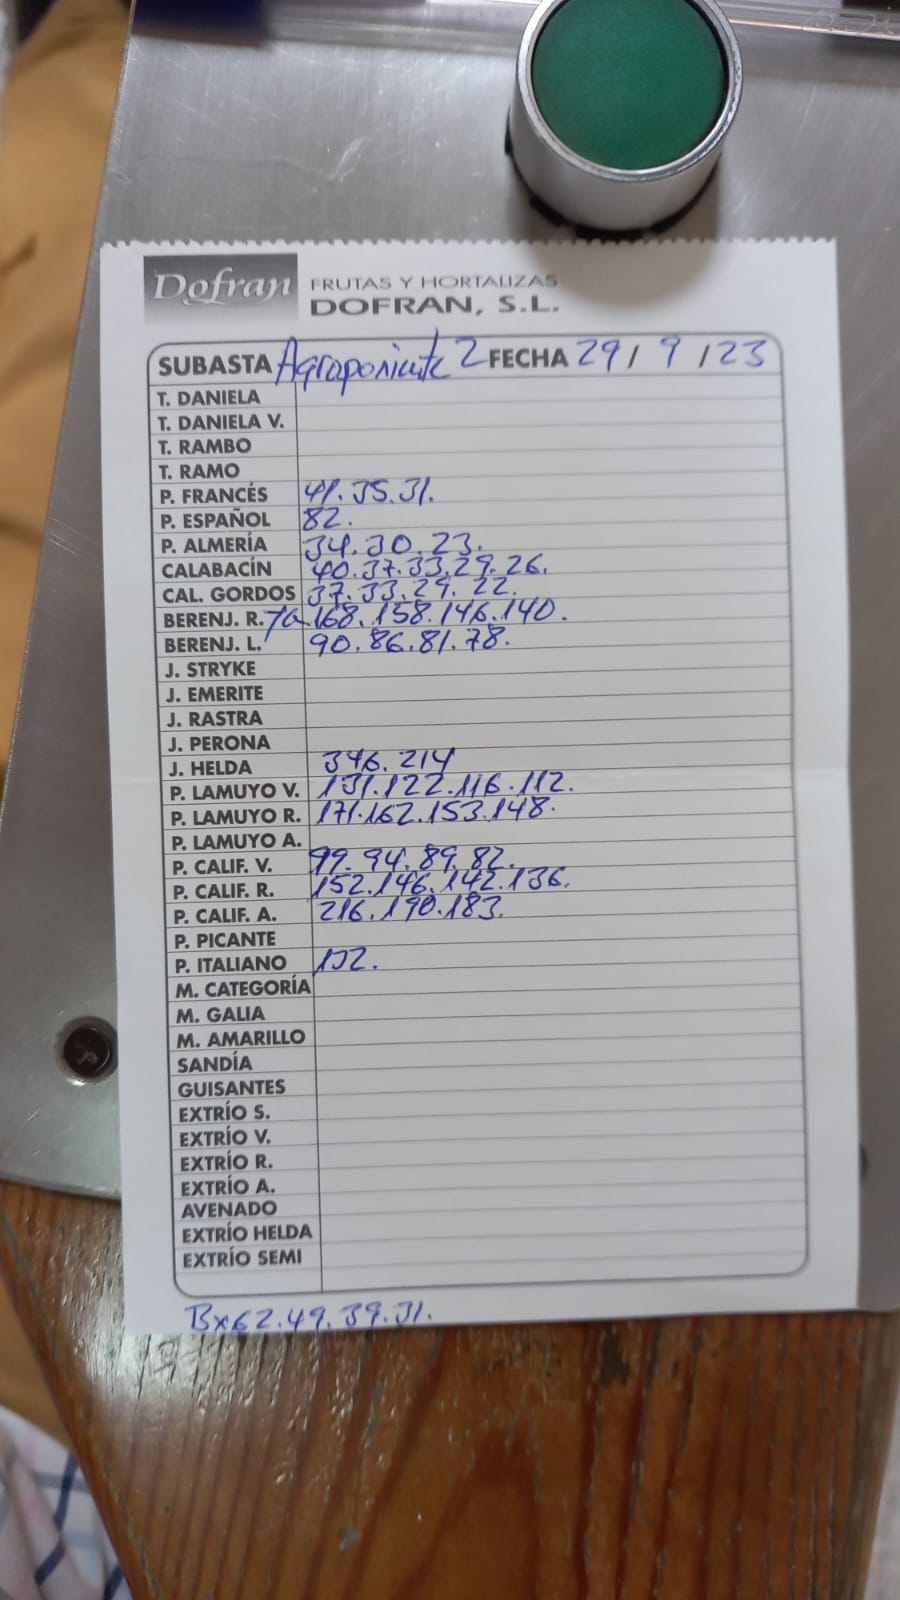 Dofran FRUTAS Y HORTALIZAS
DOFRAN, S.L.
SUBASTA Agroponiente 2 FECHA 29 / 9 / 23
T. DANIELA
T. DANIELA V.
T. RAMBO
T. RAMO
P. FRANCÉS 41.35.31.
P. ESPAÑOL 82.
P. ALMERÍA 34.30.23.
CALABACÍN 40.37.33.29.26.
CAL. GORDOS 37.33.29.22.
BERENJ. R. 168.158.146.140.
BERENJ. L. 90.86.81.78.
J. STRYKE
J. EMERITE
J. RASTRA
J. PERONA
J. HELDA 346.214
P. LAMUYO V. 131.122.116.112.
P. LAMUYO R. 171.162.153.148.
P. LAMUYO A.
P. CALIF. V. 99.94.89.82.
P. CALIF. R. 152.146.142.136.
P. CALIF. A. 216.190.183.
P. PICANTE
P. ITALIANO 132.
M. CATEGORÍA
M. GALIA
M. AMARILLO
SANDÍA
GUISANTES
EXTRÍO S.
EXTRÍO V.
EXTRÍO R.
EXTRÍO A.
AVENADO
EXTRÍO HELDA
EXTRÍO SEMI
Bx62.49.39.31.